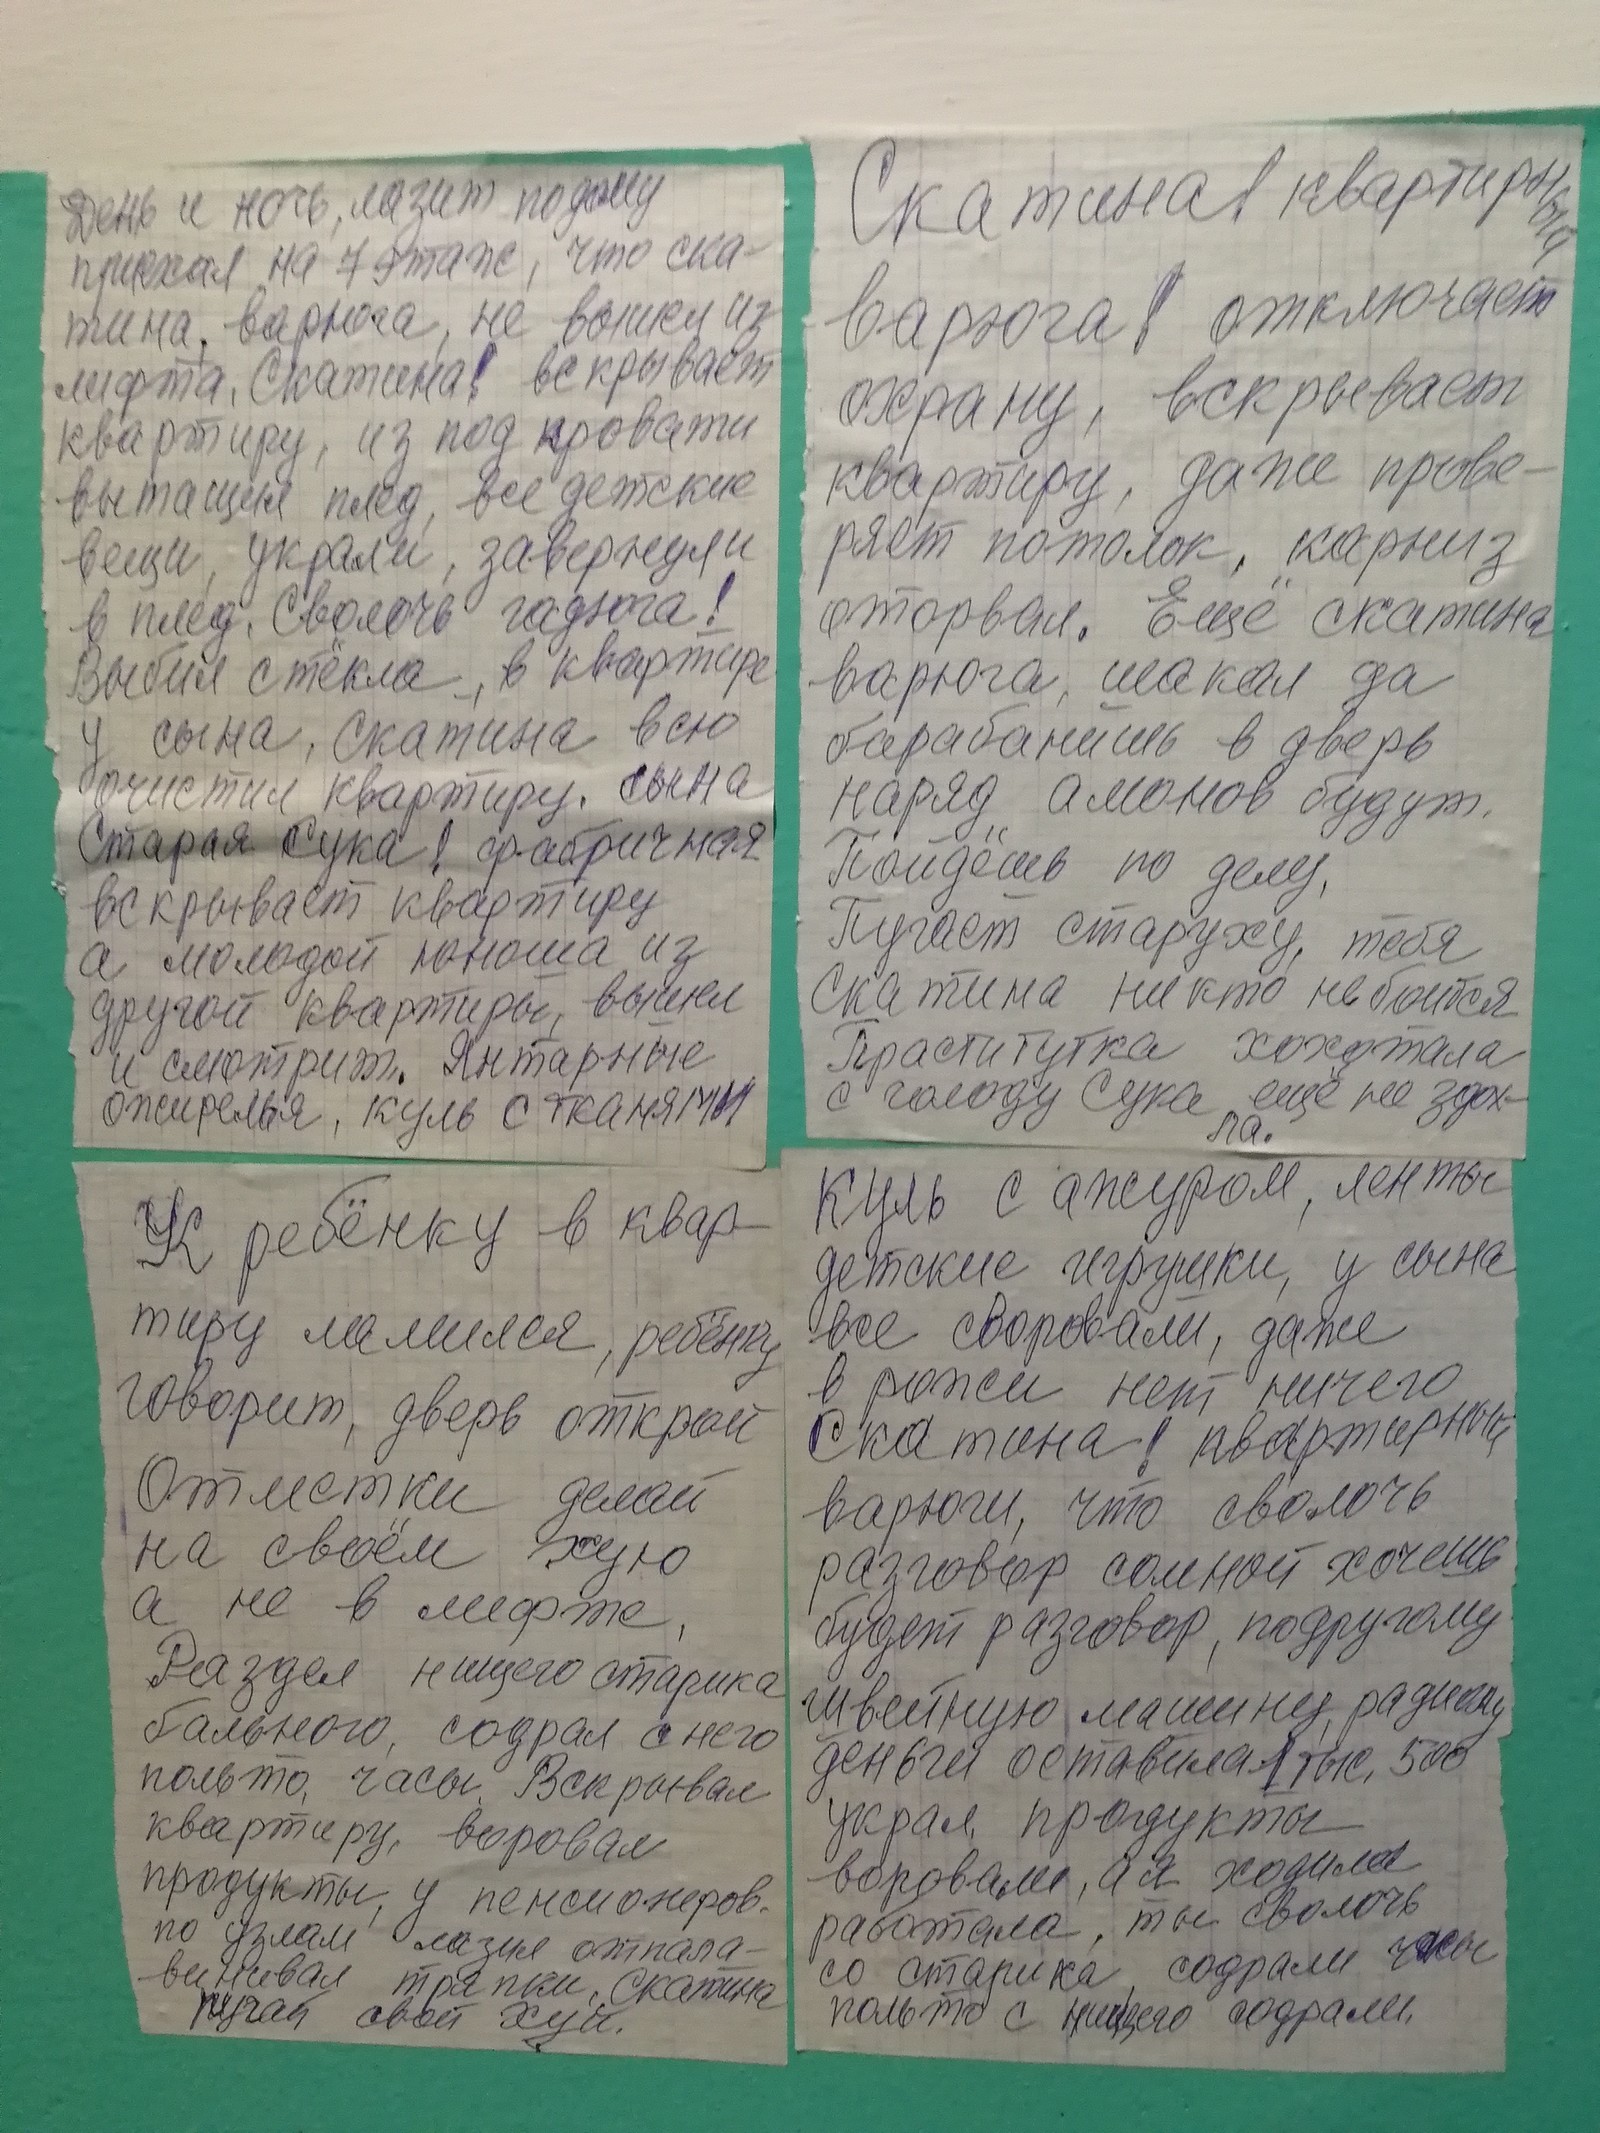 День и ночь, лазит подому
приехал на 7 этаж, что ска-
тина, варюга, не вышел из
лифта, Скатина! вскрывает
квартиру, из под кровати
вытащил плед, все детские
вещи, украли, завернули
в плед. Сволочь гадюга!
Выбил стёкла, в квартире
у сына, Скатина всю
очистил квартиру. сына
Старая Сука! фабричная
вскрывает квартиру
а молодой юноша из
другой квартиры, вышел
и смотрит. Янтарные
ожирелья, куль с тканями
Скатина! квартирный
варюга! отключает
охрану, вскрывает
квартиру, даже прове-
ряет потолок, карниз
оторвал. Ещё скатина
варюга, шакал да
барабанишь в дверь
наряд амонов будут.
Пойдёшь по делу,
Пугает старуху, тебя
Скатина никто не боится
Праститутка хохотала
с голоду Сука ещё не здох-
ла.
К ребёнку в квар-
тиру ламился, ребёнку
говорит, дверь открой
Отметки делай
на своём хую
а не в лифте,
Раздел нищего старика
бального, содрал с него
польто, часы. Вскрывал
квартиру, воровал
продукты, у пенсионеров.
по узлам лазил отпала-
винивал тряпки, Скатина
пугай свой хуй.
Куль с ажуром, ленты
детские игрушки, у сына
все своровали, даже
в рожи нет ничего
Скатина! квартирный
варюги, что сволочь
разговор сомной хочешь
будет разговор, подругому
швейную машину,
деньги оставила 1 тыс. 500
украл, продукты
воровали, а я ходила
работала, ты сволочь
со старика содрали часы
польто с нищего содрали.